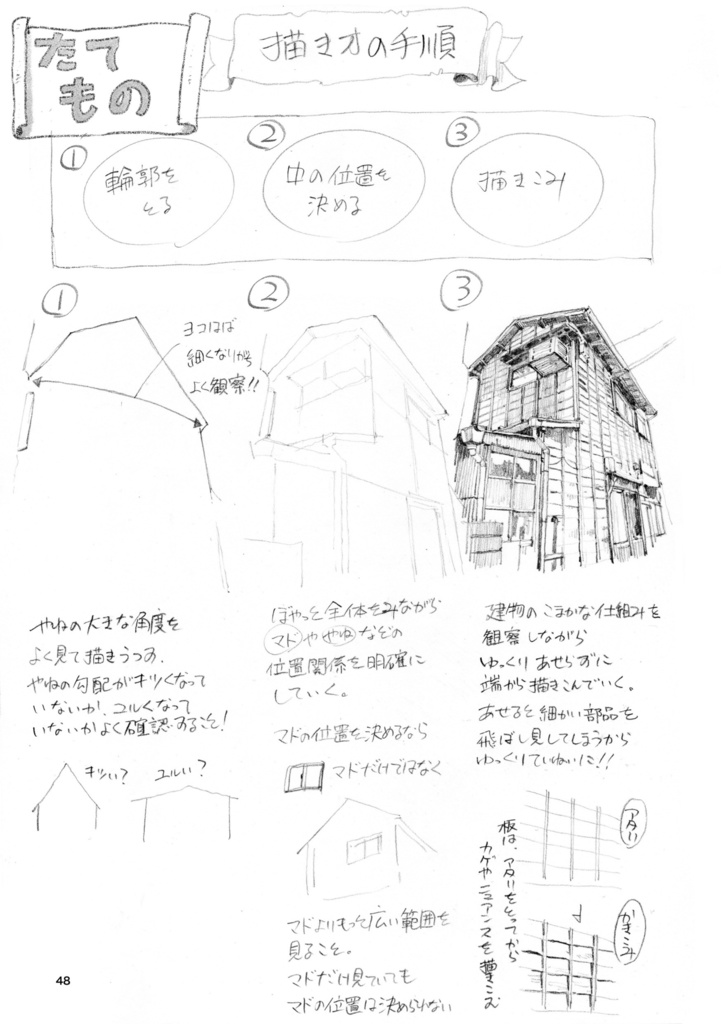 たて
もの
描き方の手順
①
輪郭を
とる
②
中の位置を
決める
③
描きこみ
①
ヨコはば
細くなりがち
よく観察!!
②
③
やねの大きな角度を
よく見て描きうつす.
やねの勾配がキツくなって
いないか.ユルくなって
いないかよく確認すること!
キツい?
ユルい?
ぼやっと全体をみながら
マドややねなどの
位置関係を明確に
していく。
マドの位置を決めるなら
マドだけではなく
マドよりもっと広い範囲を
見ること。
マドだけ見ていても
マドの位置は決められない
建物のこまかな仕組みを
観察しながら
ゆっくりあせらずに
端から描きこんでいく。
あせると細かい部品を
飛ばし見してしまうから
ゆっくりていねいに!!
アタリ
板は、アタリをとってから
カゲやニュアンスを描きこむ
かきこみ
48